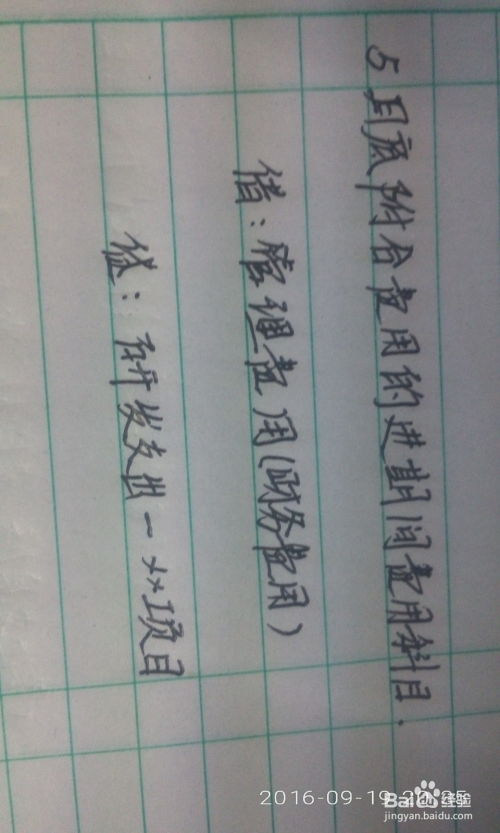 5 月底附合费用的进期间费用科目.
借:管理费用(财务费用)
贷:研发支出一××项目
2016-09-19 20:25
Baidu经验
jingyan.baidu.com